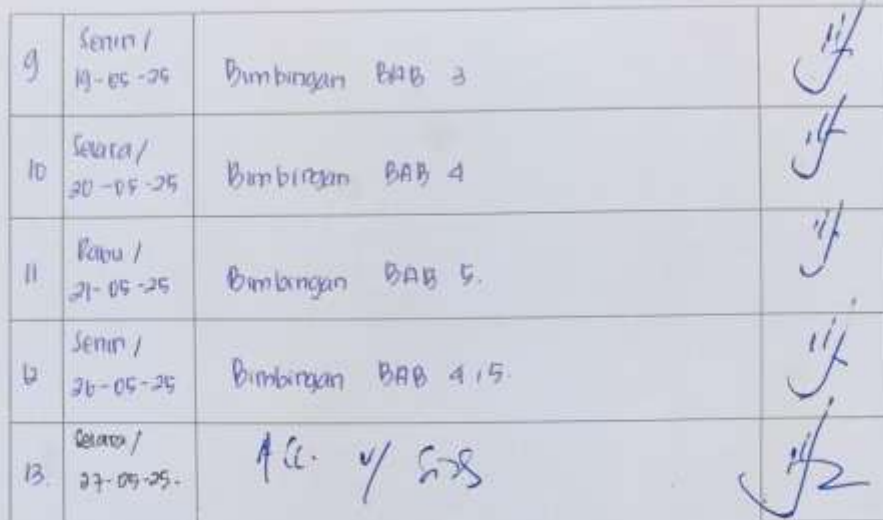 9
Senin /
19-05-25
Bimbingan BAB 3
10
Selasa /
20-05-25
Bimbingan BAB 4
11
Rabu /
21-05-25
Bimbingan BAB 5.
12
Senin /
26-05-25
Bimbingan BAB 4,5.
13.
Selasa /
27-05-25.
ACC.